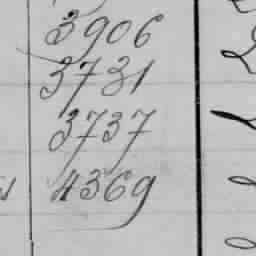 3906
3731
3737
4369